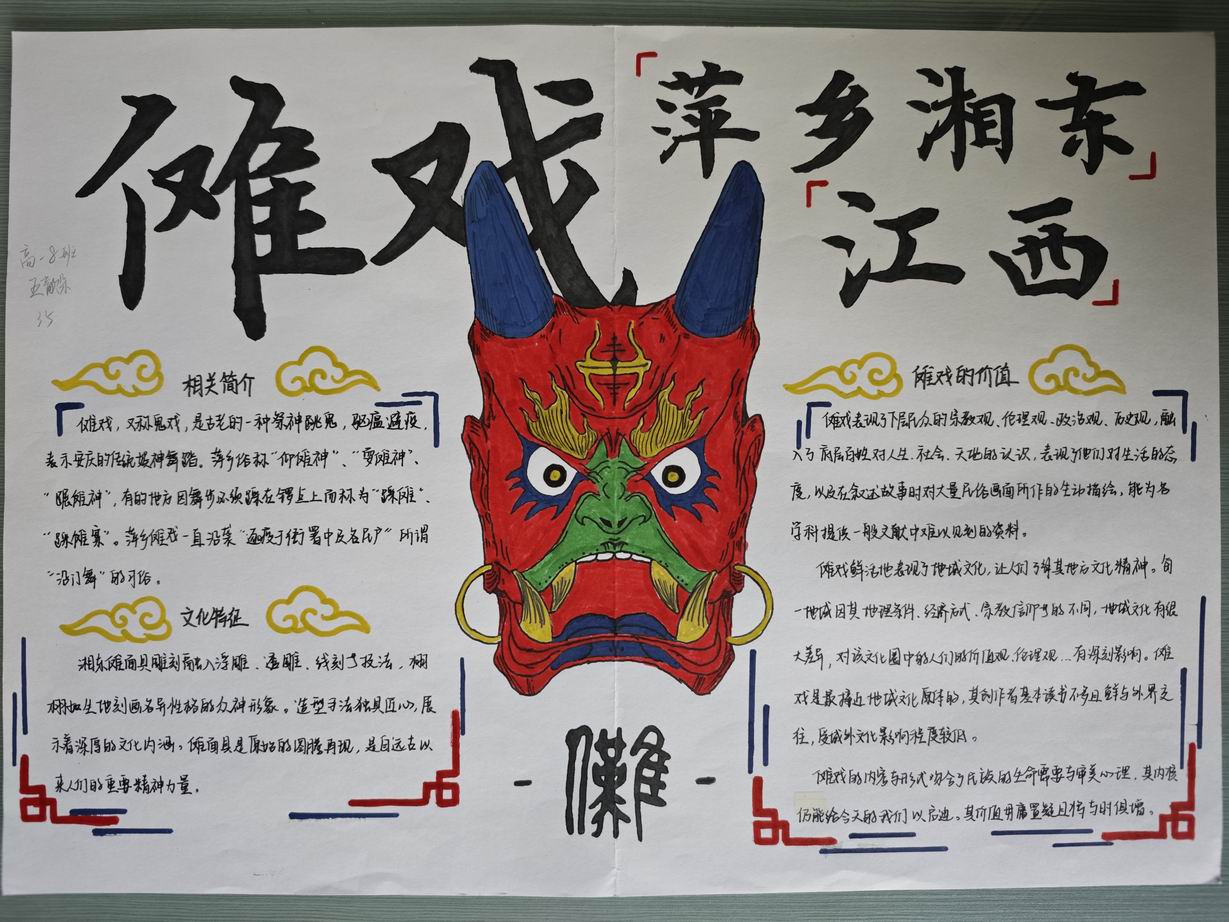 傩戏
萍乡湘东
江西
高一8班
35
相关简介
傩戏，又称鬼戏，是古老的一种祭神跳鬼，驱瘟避疫，
表示安庆的传统娱神舞蹈。萍乡俗称"仰傩神"、"耍傩神"、
"跟傩神"，有的地方因舞步必须踩在锣点上而称为"踩傩"、
"踩傩案"。萍乡傩戏一直沿袭"逐疫于衙署中及各民户"所谓
"沿门舞"的习俗。
文化特征
湘东傩面具雕刻融入浮雕、透雕、线刻等技法，栩
栩如生地刻画各异性格的力神形象。造型手法独具匠心，展
示着深厚的文化内涵。傩面具是原始的图腾再现，是自远古以
来人们的重要精神力量。
儺
傩戏的价值
傩戏表现了下层民众的宗教观、伦理观、政治观、历史观，融
入了底层百姓对人生、社会、天地的认识，表现了他们对生活的态
度，以及在叙述故事时对大量民俗画面所作的生动描绘，能为各
学科提供一般文献中难以见到的资料。
傩戏鲜活地表现了地域文化，让人们了解其地方文化精神。每
一地域因其地理条件、经济方式、宗教信仰等的不同，地域文化有很
大差异，对该文化圈中的人们的价值观、伦理观...有深刻影响。傩
戏是最接近地域文化原体的，其创作者基本读书不多且鲜与外界交
往，受域外文化影响程度较低。
傩戏的内容与形式吻合了民族的生命需要与审美心理，其内核
仍能给今天的我们以启迪。其价值毋庸置疑且将与时俱增。